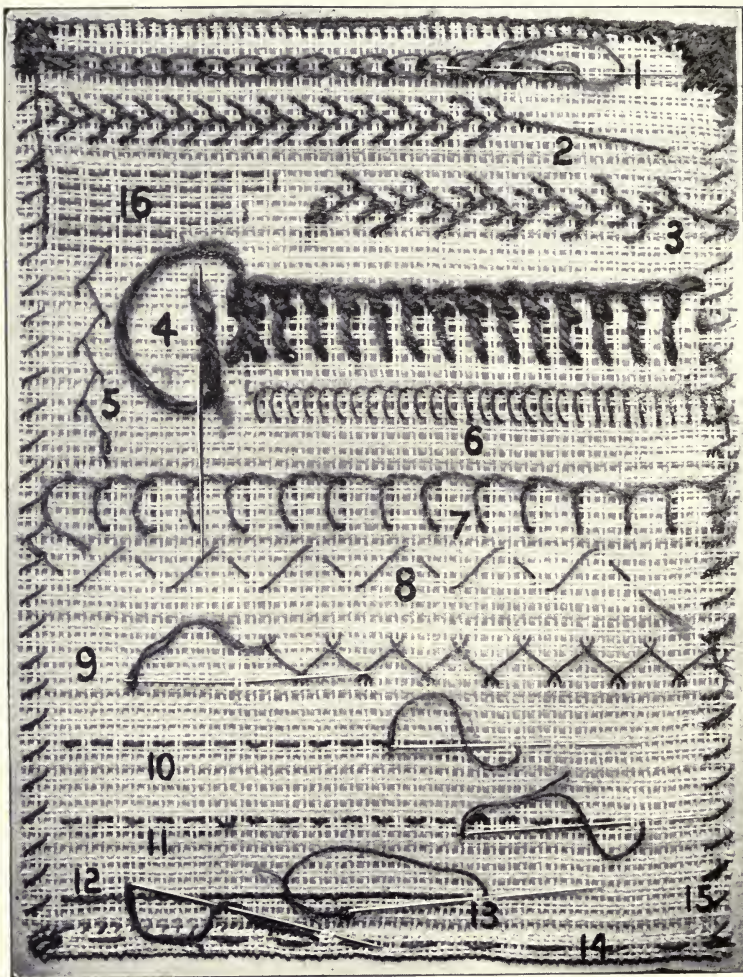 1
2
16
3
4
5
6
7
8
9
10
11
12
13
15
14